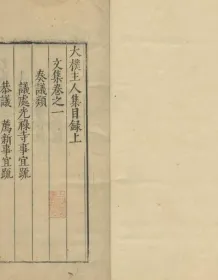 大樸主人集目錄上
文集卷之一
奏議類
議處光祿寺事宜疏
恭議薦新事宜疏